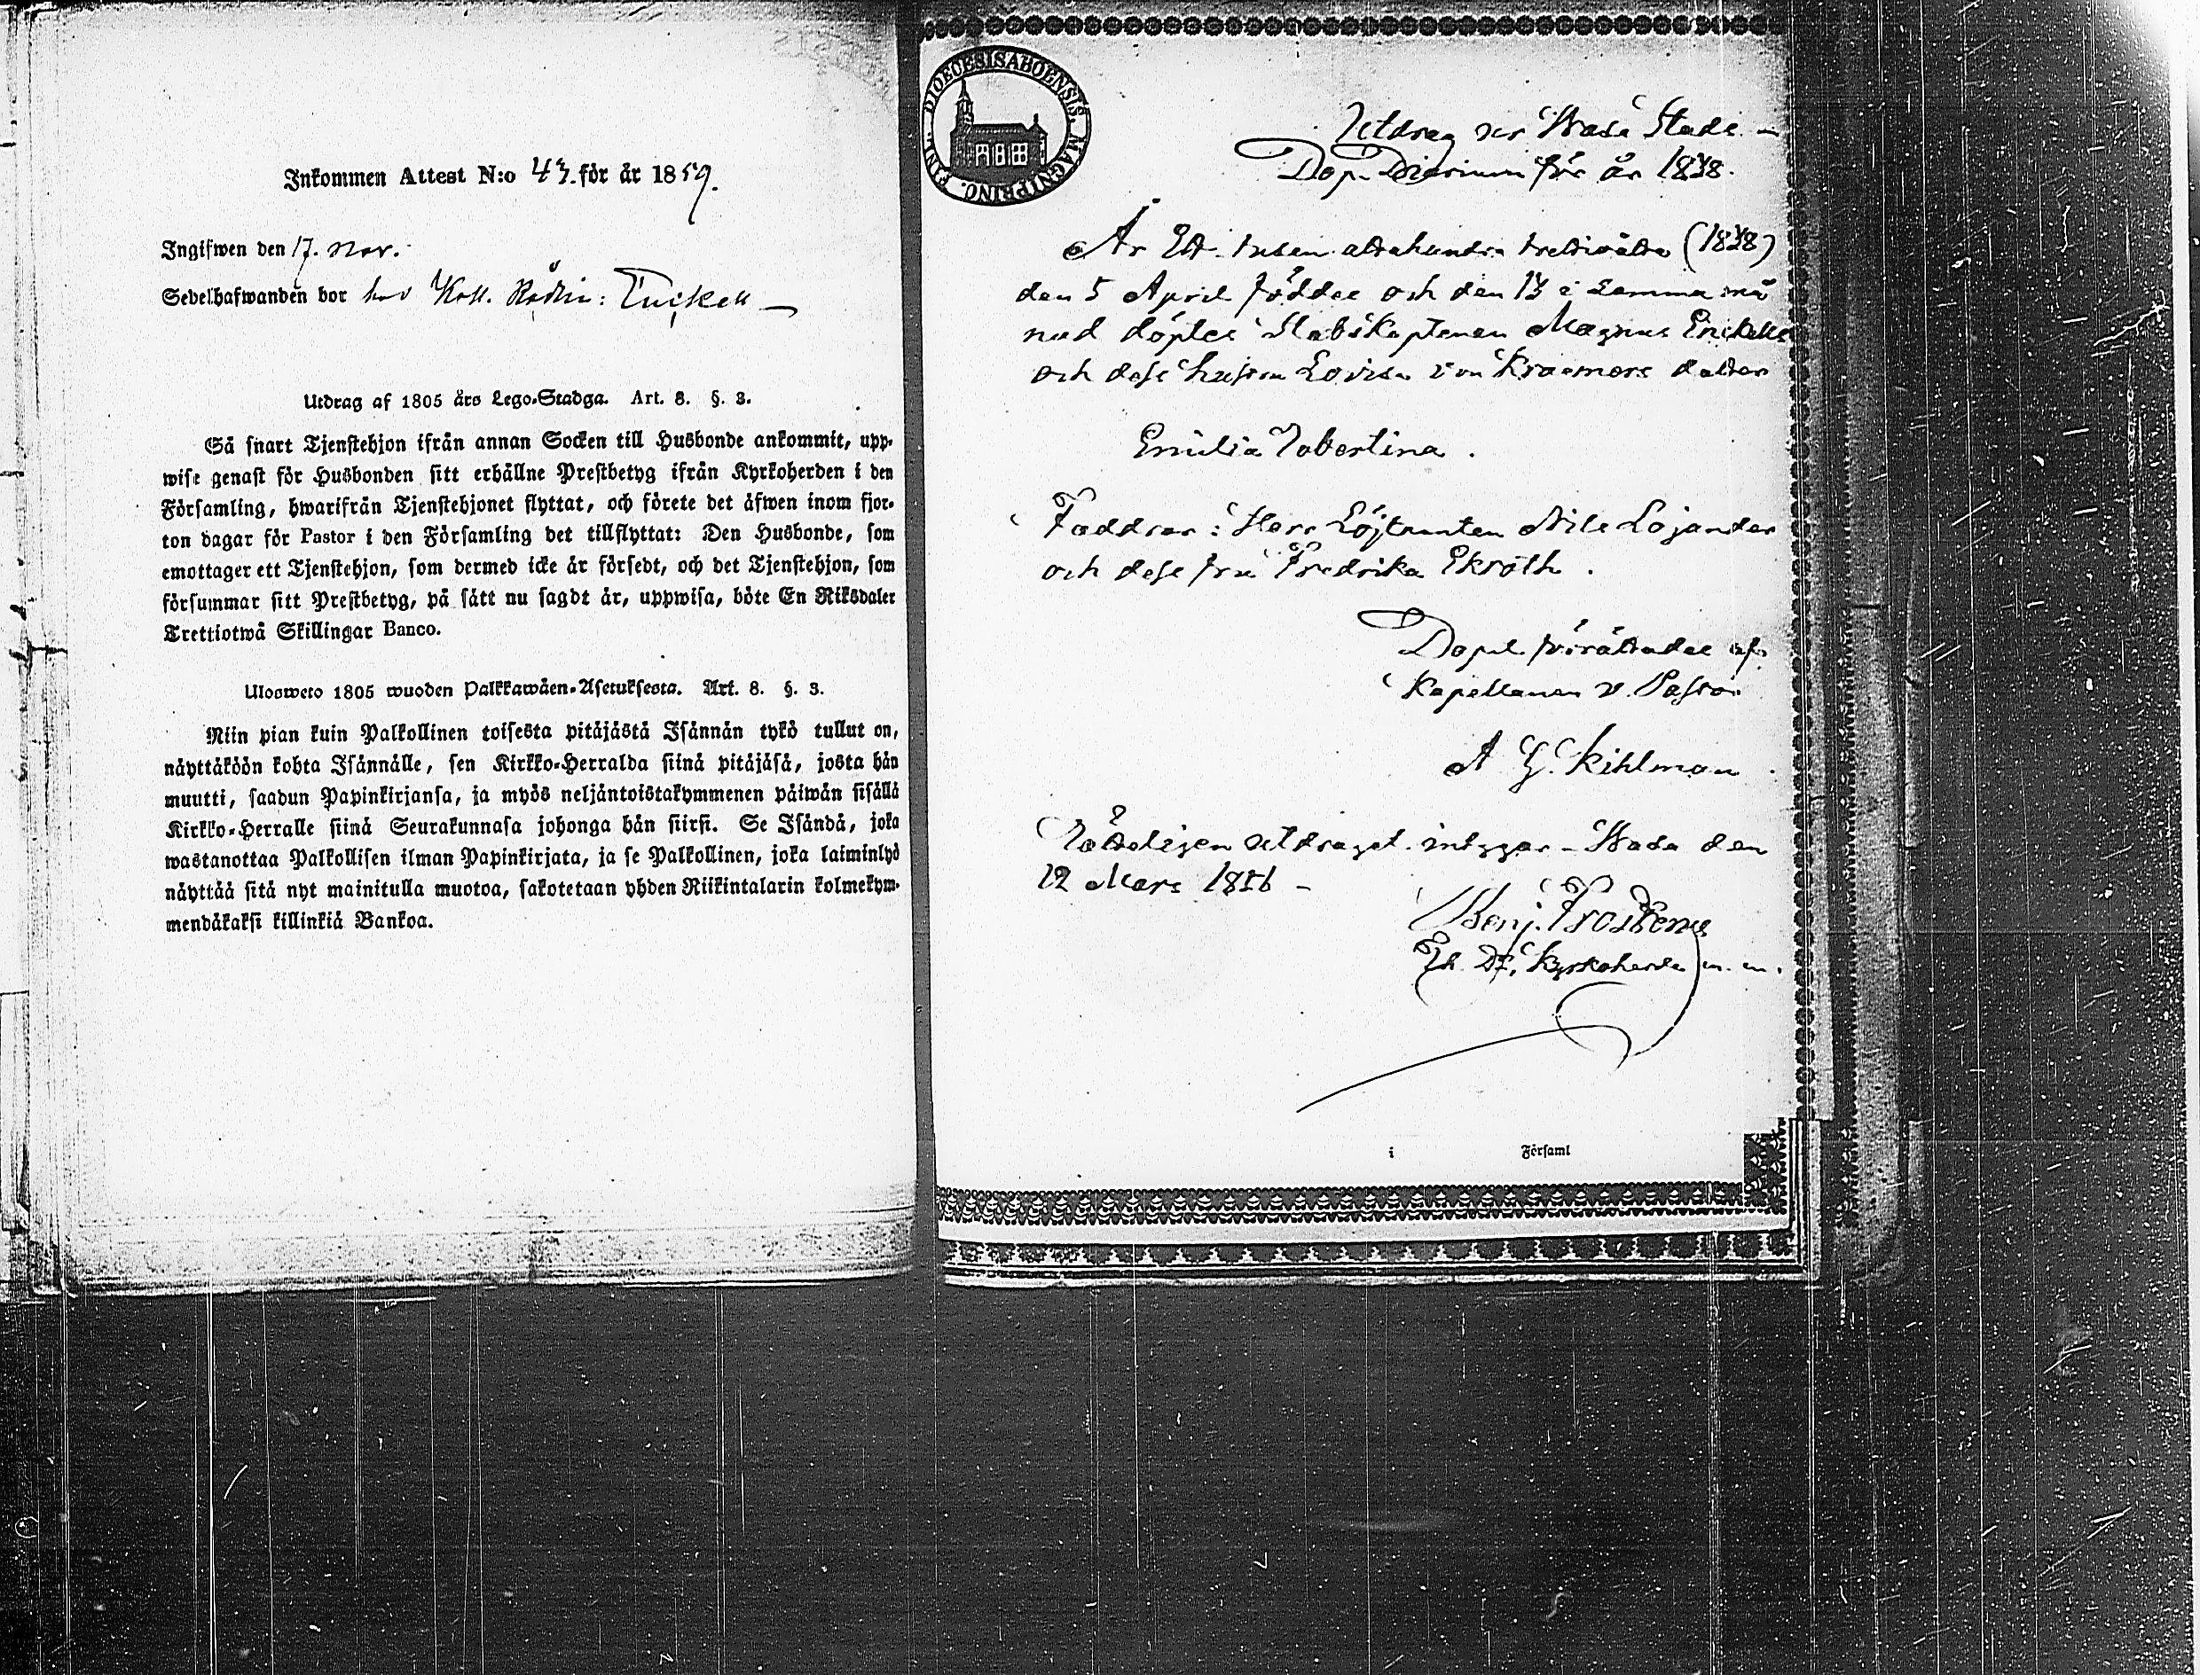 Inkommen Attest N:o 43. för år 1859.
Ingifwen den 17. Nov.
Sedelhafwanden bor hos Koll. Rådin:
Utdrag af 1805 års Lego-Stadga. Art. 8. §. 3.
Så snart Tjenstehjon ifrån annan Socken till Husbonde ankommit, upp-
wise genast för Husbonden sitt erhållne Prestbetyg ifrån Kyrkoherden i den
Församling, hwarifrån Tjenstehjonet flyttat, och förete det äfwen inom fjor-
ton dagar för Pastor i den Församling det tillflyttat: Den Husbonde, som
emottager ett Tjenstehjon, som dermed icke är försedt, och det Tjenstehjon, som
försummar sitt Prestbetyg, på sätt nu sagdt är, uppwisa, böte En Riksdaler
Trettiotwå Skillingar Banco.
Ulosweto 1805 wuoden Palkkawäen-Asetuksesta. Art. 8. §. 3.
Niin pian kuin Palkollinen toisesta pitäjästä Isännän tykö tullut on,
näyttäköön kohta Isännälle, sen Kirkko-Herralda siinä pitäjäsä, josta hän
muutti, saadun Papinkirjansa, ja myös neljäntoistakymmenen päiwän sisällä
Kirkko-Herralle siinä Seurakunnasa johonga hän siirsi. Se Isändä, joka
wastanottaa Palkollisen ilman Papinkirjata, ja se Palkollinen, joka laiminlyö
näyttää sitä nyt mainitulla muotoa, sakotetaan yhden Riikintalarin kolmekym-
mendäkaksi killinkiä Bankoa.
DIOECESIS ABOENSIS. MAGNI PRINC. FINL.
Utdrag ur Wasa Stads
Dop-Diarium för år 1838.
År Ett tusen åttahundra trettioåtta (1838)
den 5 April föddes och den 13 i samma må
nad döptes Stabskaptenen Magnus Enckells
och dess hustru Lovisa von Kraemers dotter
Emilia Robertina.
Faddrar: Herr Löjtnanten Nils Lojander
och dess fru Fredrika Ekroth.
Dopet förrättades af
Kapellanen v. Pastor
A G. Kihlman
Rätteligen utdraget intygar - Wasa den
12 Mars 1856 -
Benj. Frosterus
Th. Dr, Kyrkoherde m. m.
i Församl